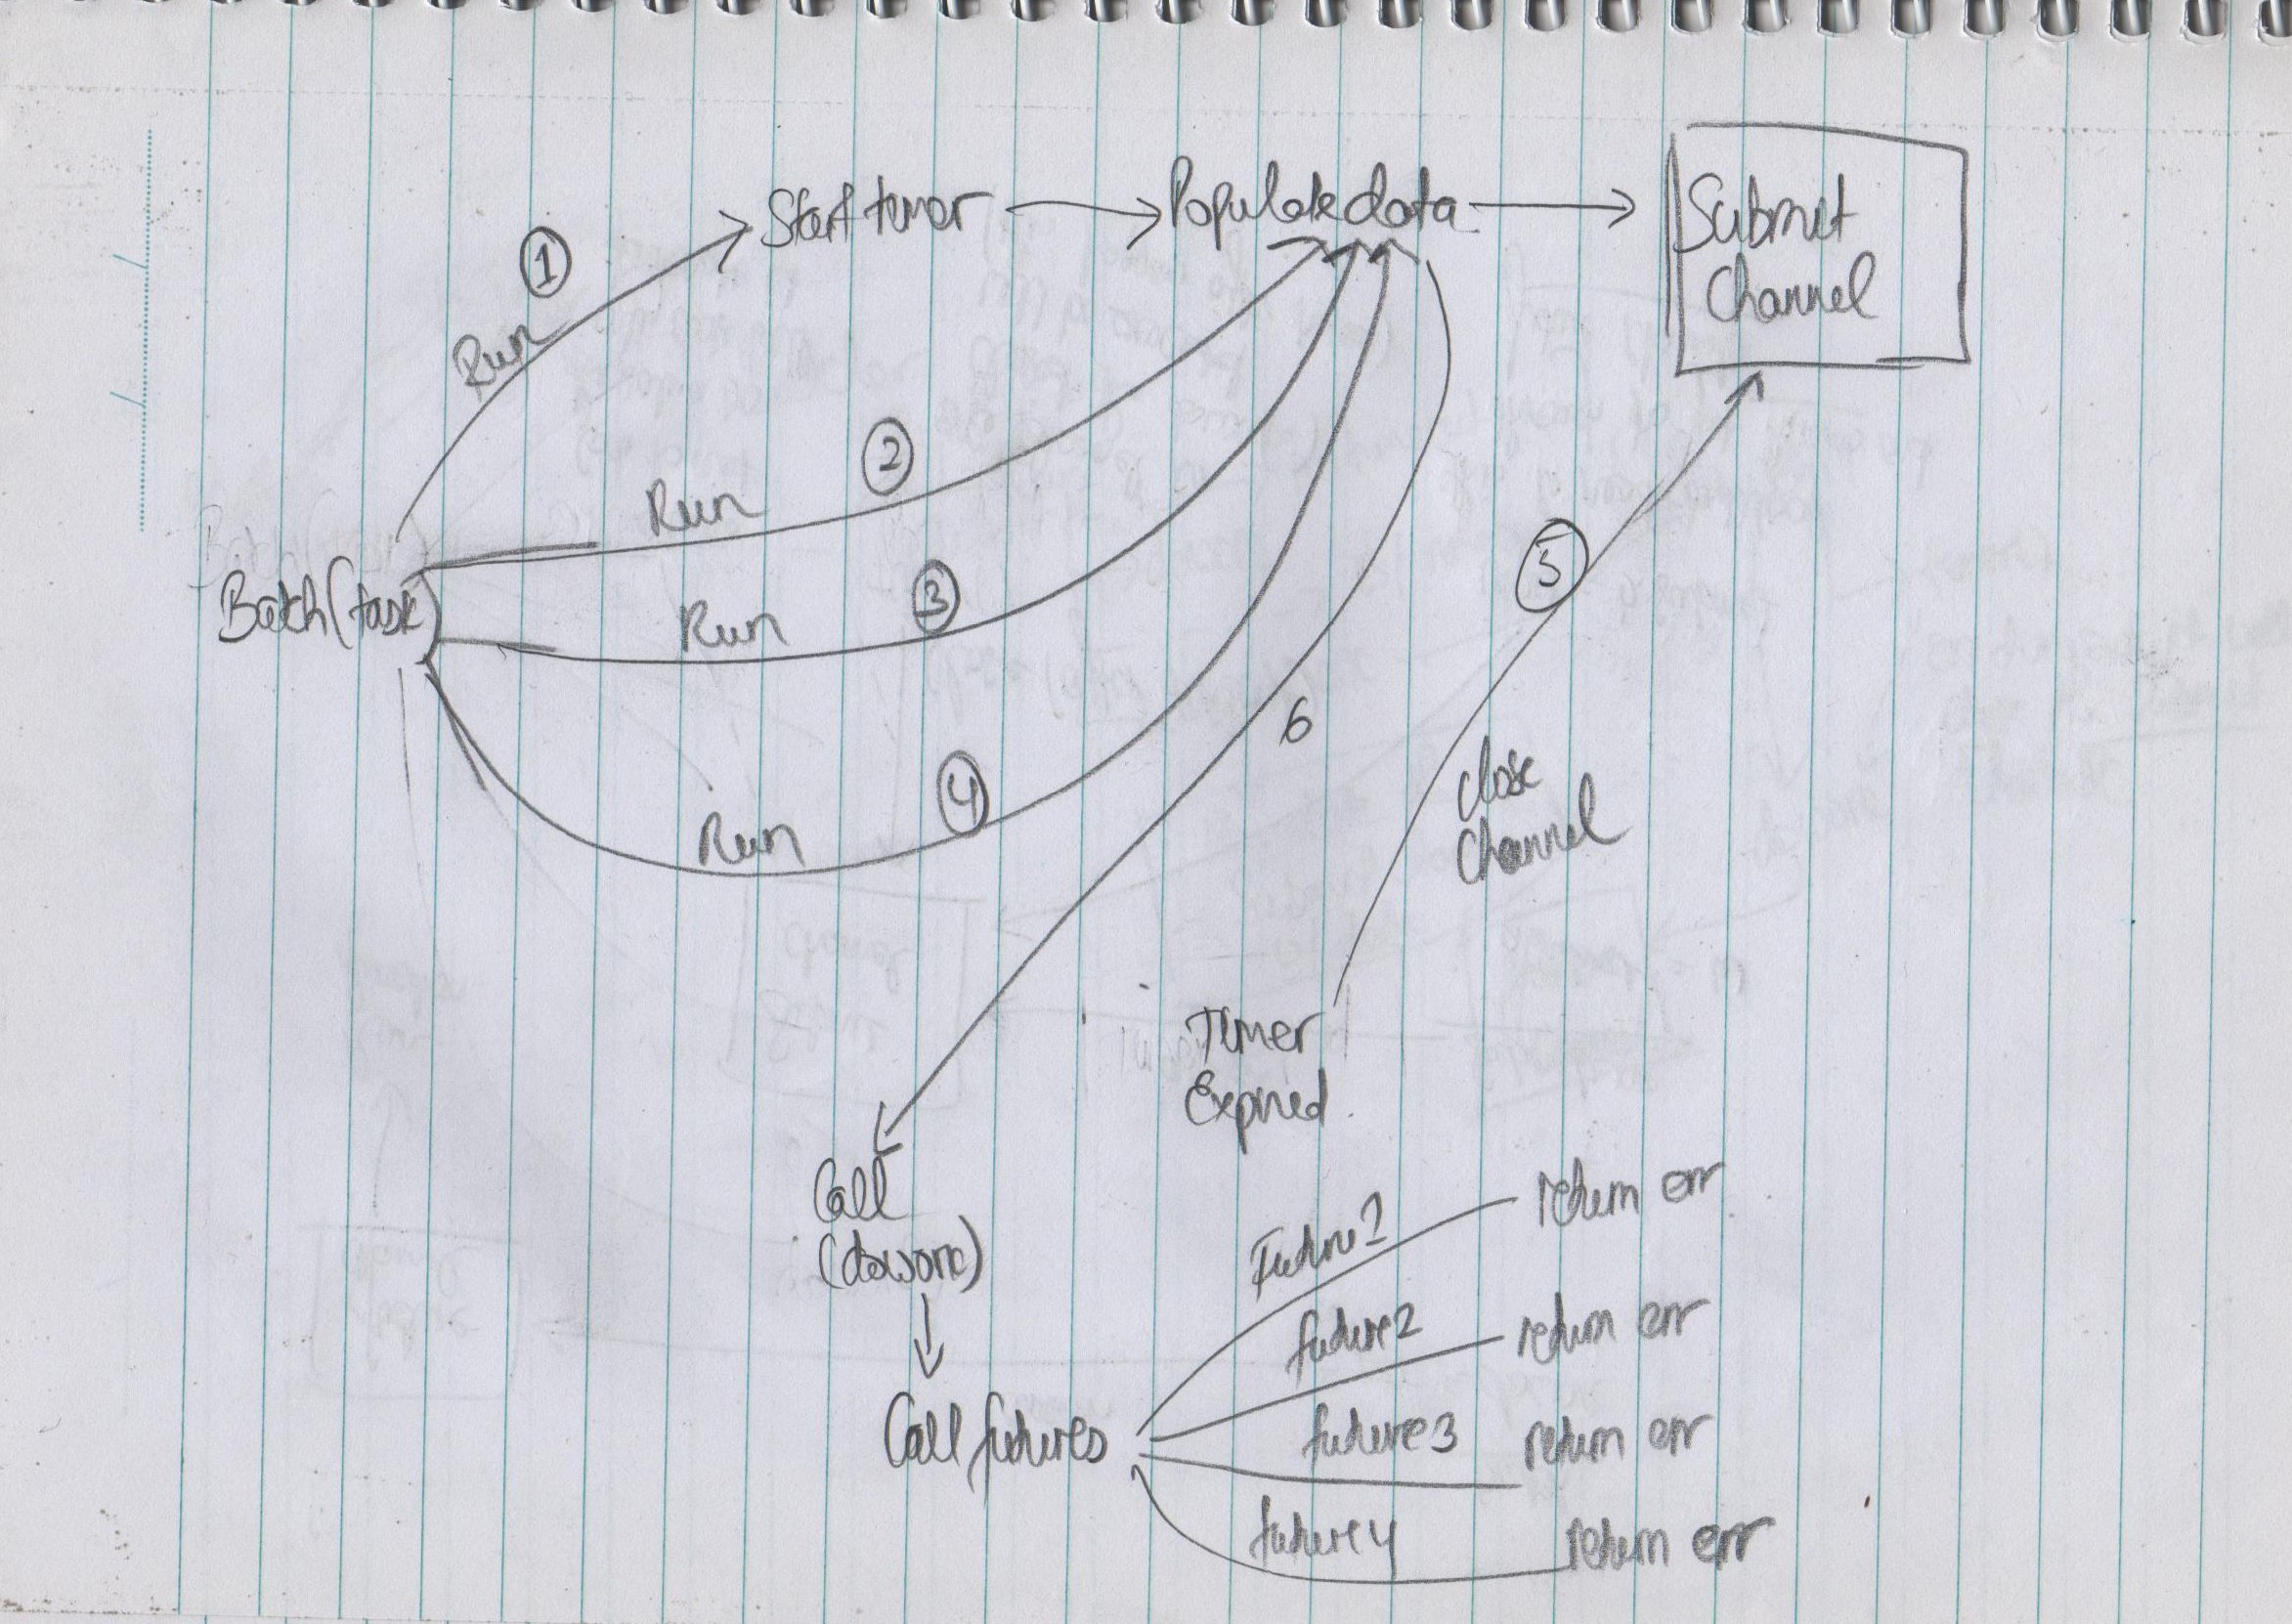 1
Start timer
Populate data
Submit
Channel
Run
2
Run
Batch(task)
3
Run
5
6
4
Run
Close
Channel
Timer
Expired
Call
(dowork)
Call futures
Future1
return err
future2
return err
future3
return err
future4
return err